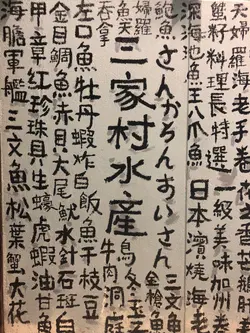 蟹籽料理長特選一級美味加州卷
深海池魚王八爪魚日本濱燒海老
鮑魚
さんかろんすいさん
三文魚
金槍魚
三家村水産
烏冬玉子
牛肉洞庭
婦羅
魚天
吞拿
左口魚牡丹蝦炸白飯魚干枝豆
金目鯛魚赤貝大尾魷水針石斑
紅珍珠貝生蠔虎蝦油甘魚
海膽軍艦三文魚松葉蟹大花